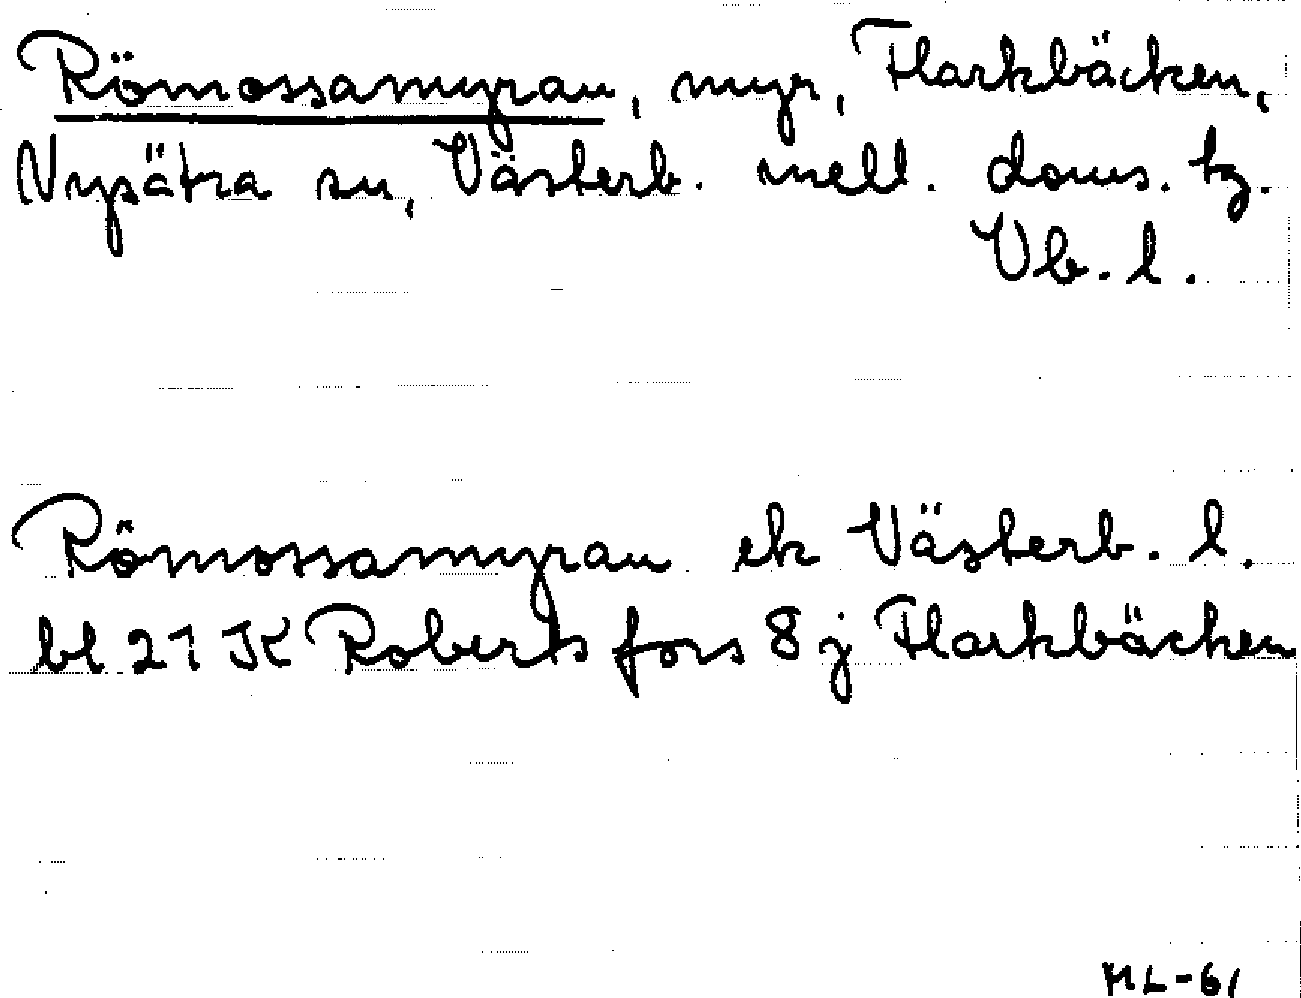 Römossamyran, myr, Flarkbäcken,
Nysätra sn, Västerb. mell. doms. tg.
Vb. l.
Römossamyran ek Västerb. l.
bl 21 K Robertsfors 8 j Flarkbäcken
ML-61